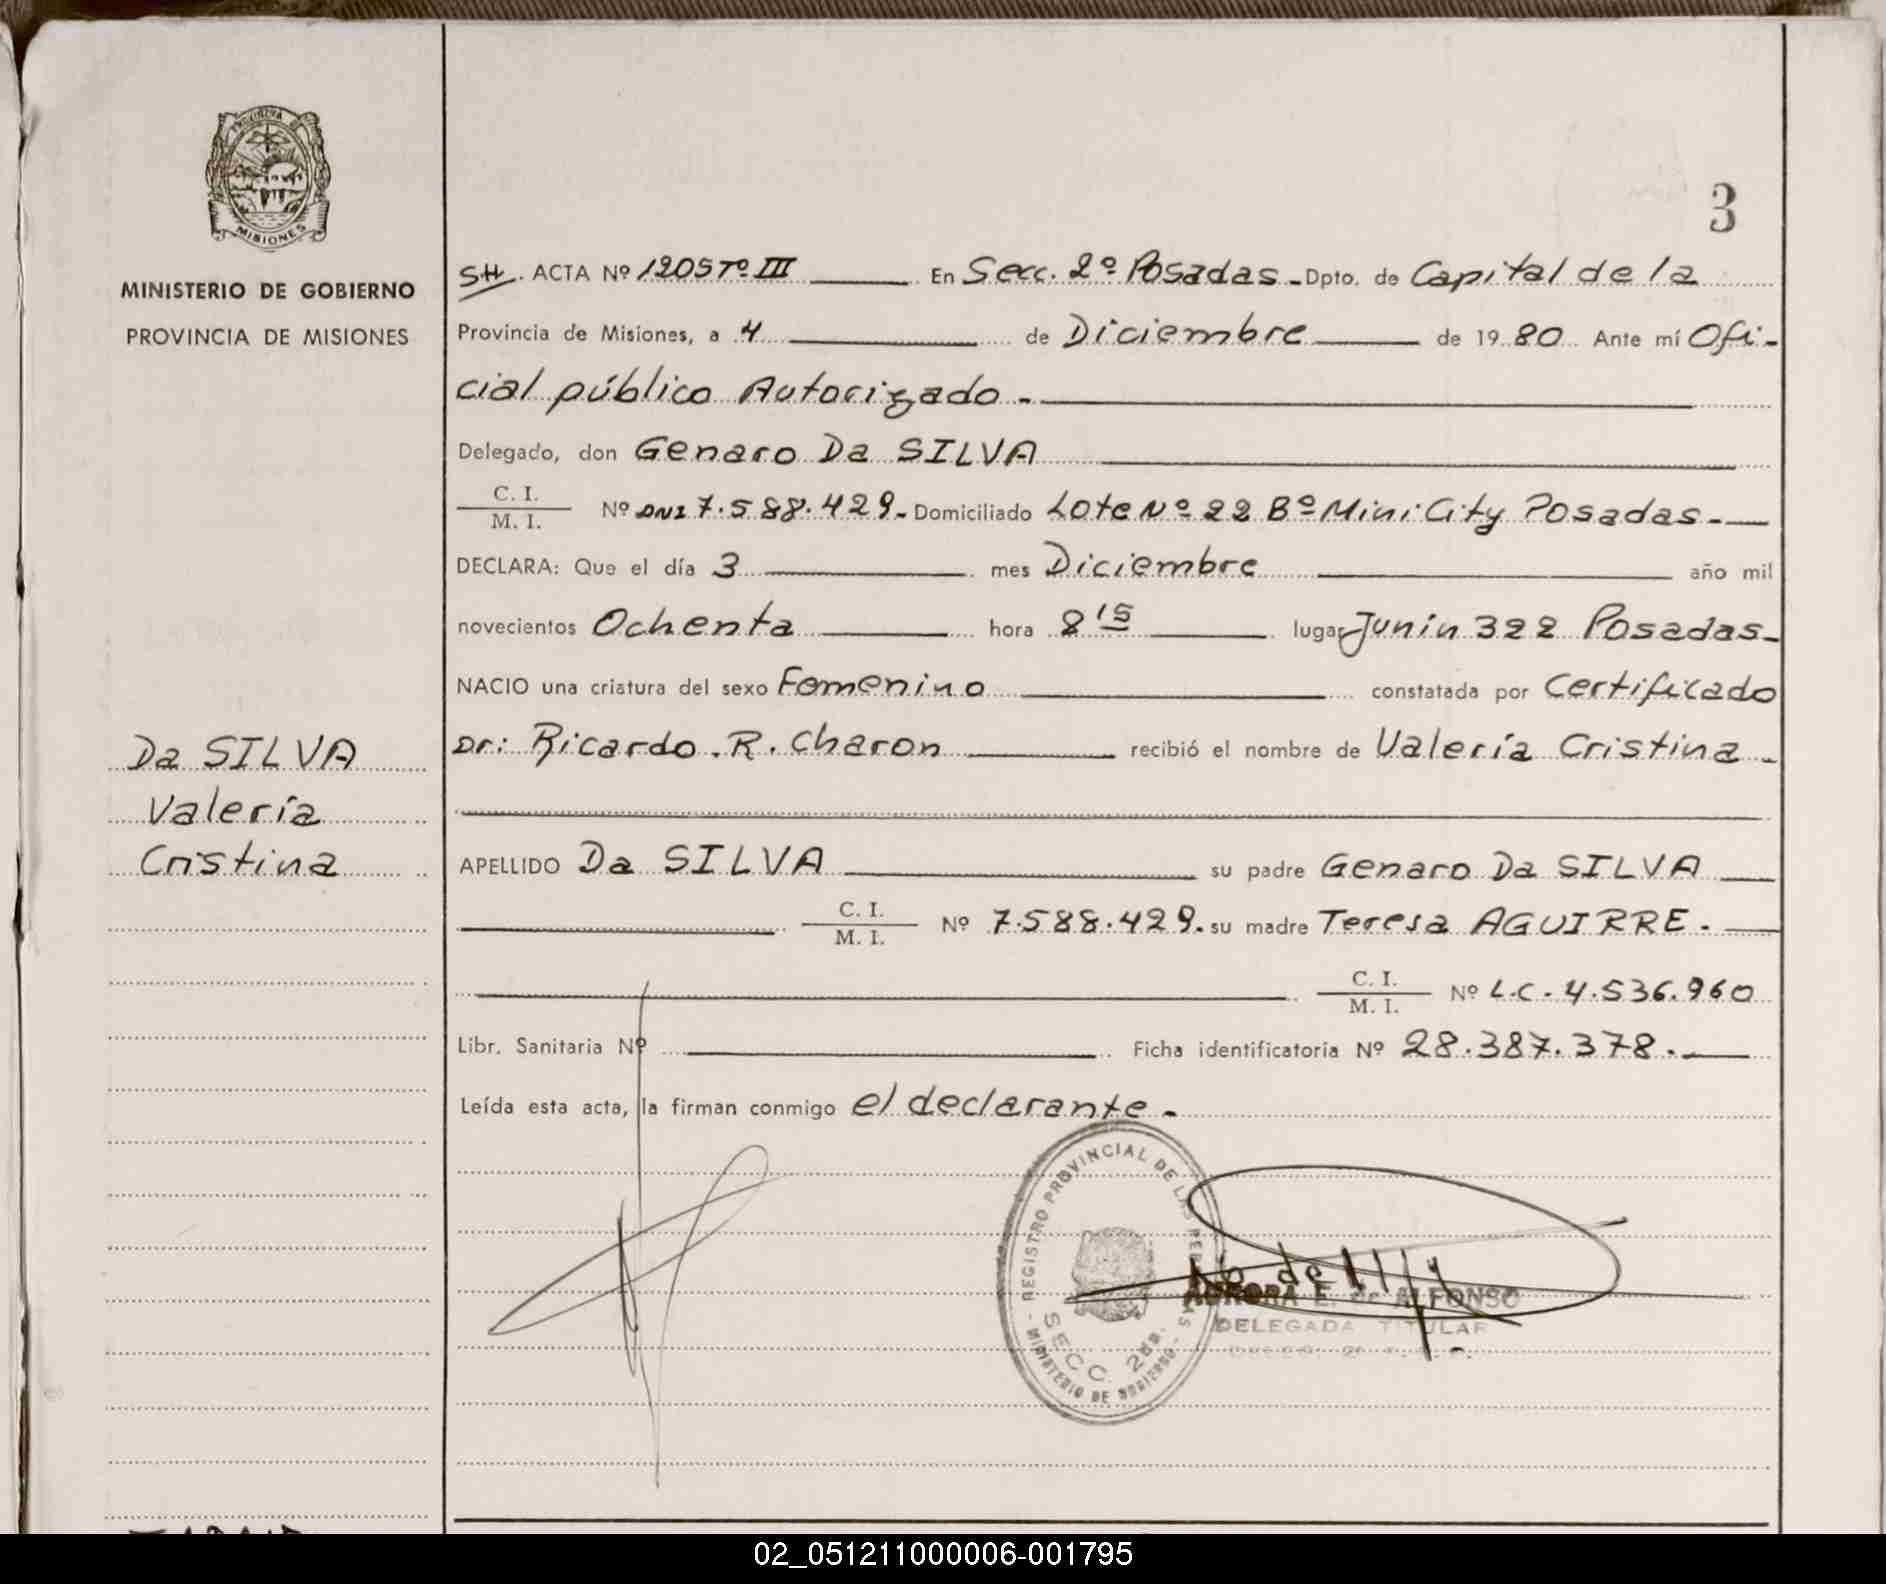 PROVINCIA DE
MISIONES
MINISTERIO DE GOBIERNO
PROVINCIA DE MISIONES
3
SH. ACTA Nº 1205 Tº III En Secc. 2º Posadas - Dpto. de Capital de la
Provincia de Misiones, a 4 de Diciembre de 19 80 Ante mí Ofi-
cial público Autorizado -
Delegado, don Genaro Da SILVA
C. I.
M. I. Nº DNI 7.588.429 - Domiciliado Lote Nº 22 Bº Mini City Posadas -
DECLARA: Que el día 3 mes Diciembre año mil
novecientos Ochenta hora 8 15 lugar Junin 322 Posadas -
NACIO una criatura del sexo Fomenino constatada por Certificado
Dr: Ricardo . R. Charon recibió el nombre de Valería Cristina -
Da SILVA
Valería
Cristina
APELLIDO Da SILVA su padre Genaro Da SILVA
C. I.
M. I. Nº 7.588.429. su madre Teresa AGUIRRE .
C. I.
M. I. Nº L.C. 4.536.960
Libr. Sanitaria Nº Ficha identificatoria Nº 28.387.378.
Leída esta acta, la firman conmigo el declarante -
REGISTRO PROVINCIAL DE LAS
SECC. 2da.
MINISTERIO DE GOBIERNO
AURORA E. de ALFONSO
DELEGADA TITULAR
02_051211000006-001795